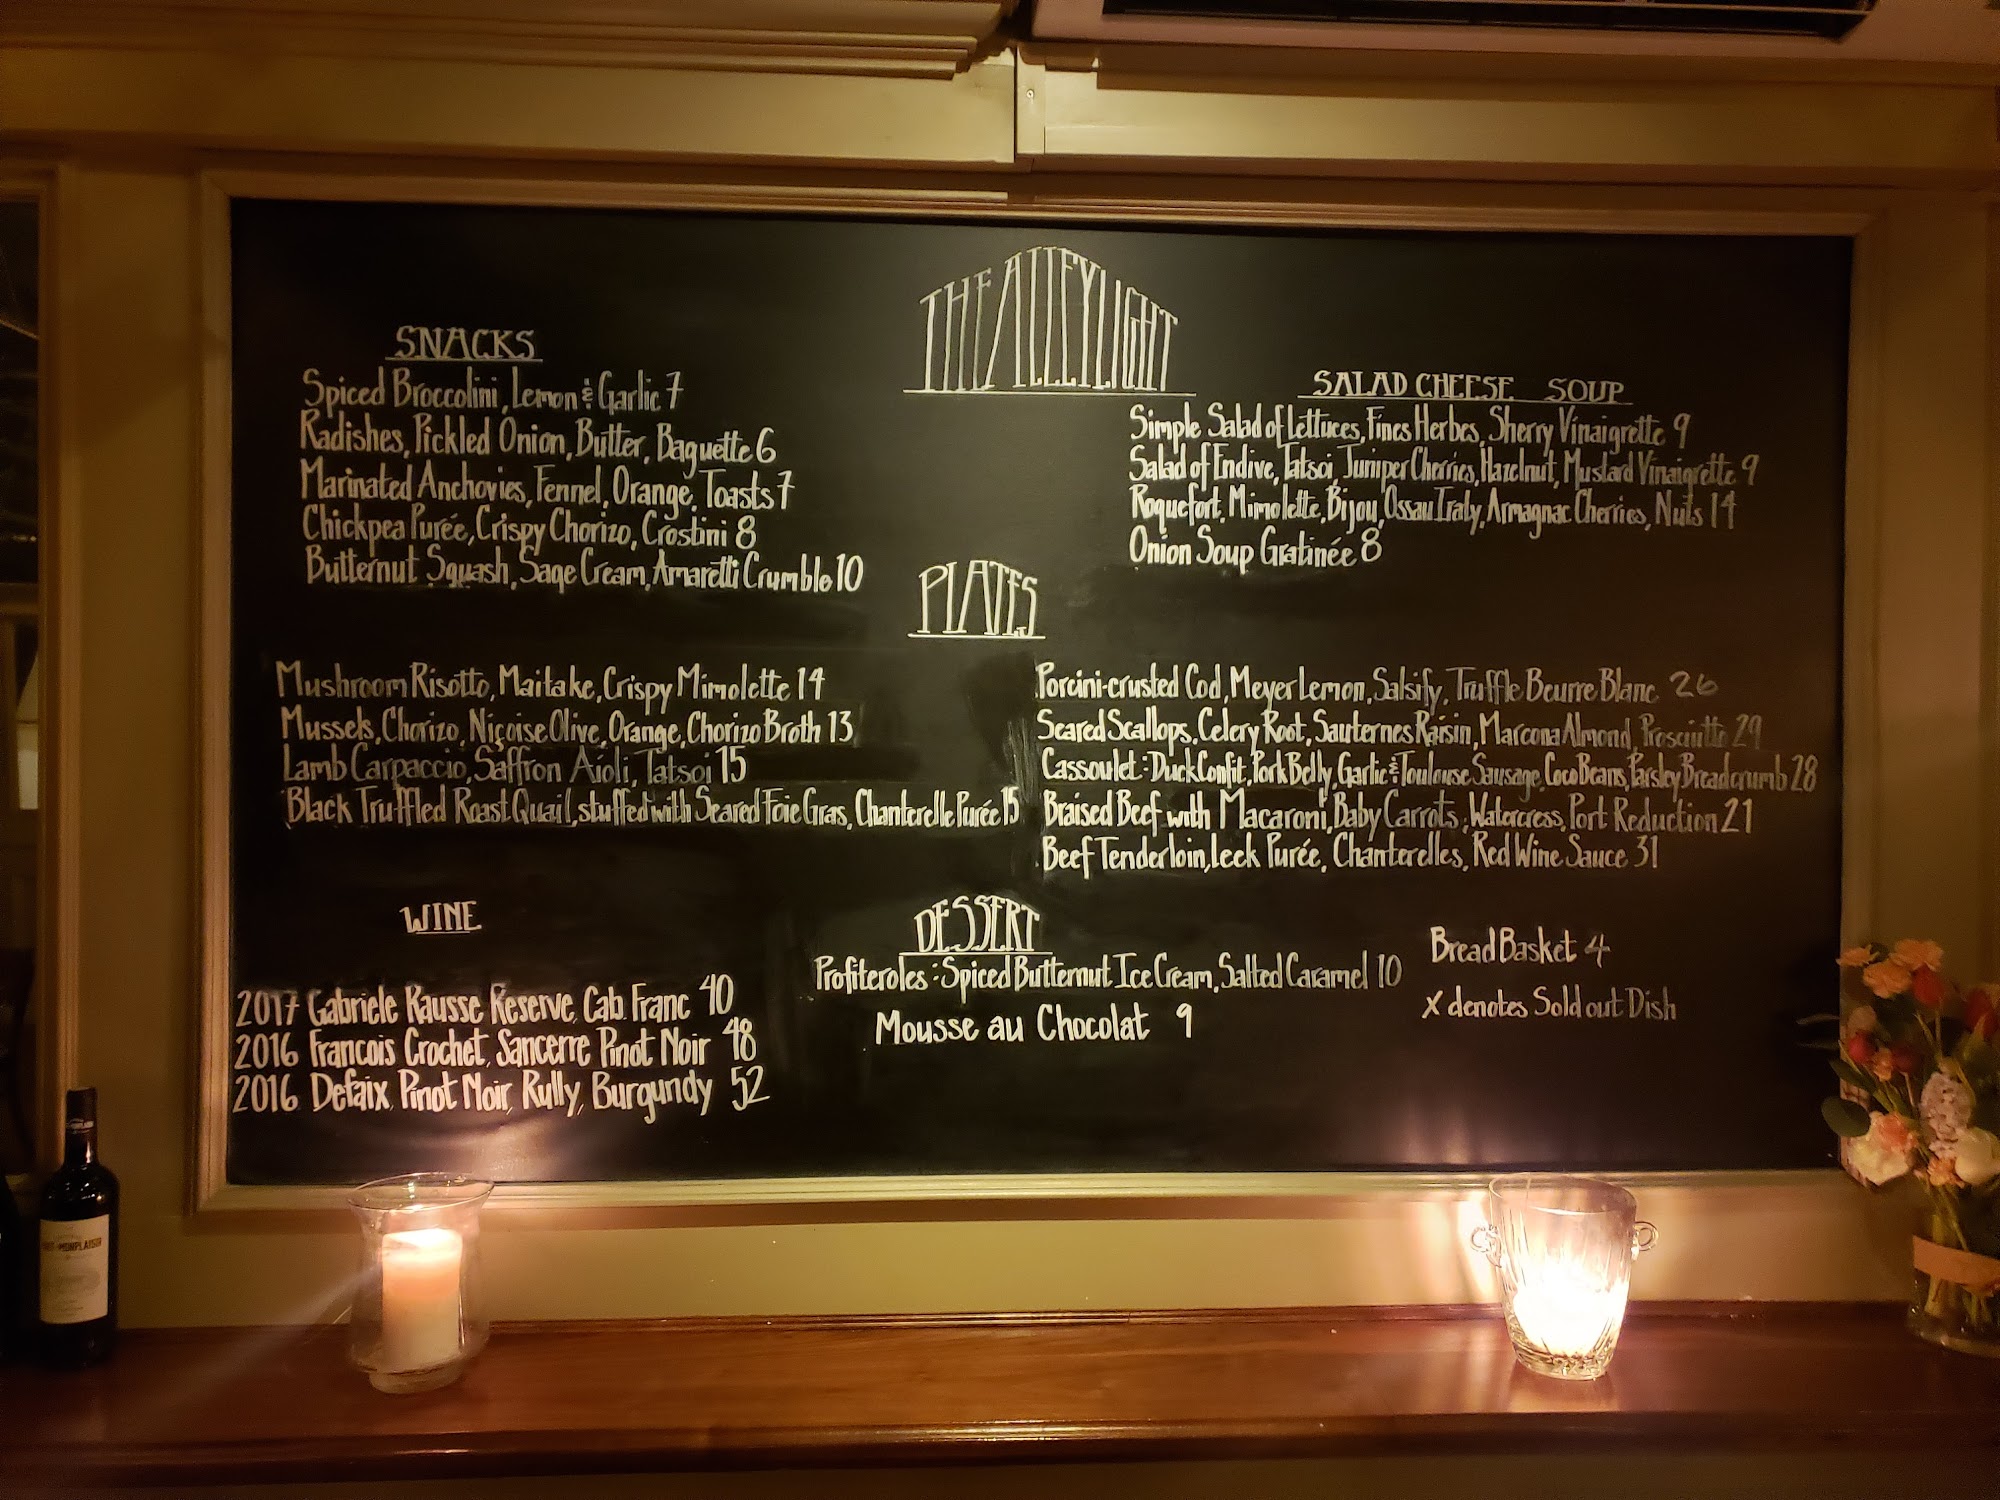 THE ALLEY LIGHT
SNACKS
Spiced Broccolini, Lemon & Garlic 7
Radishes, Pickled Onion, Butter, Baguette 6
Marinated Anchovies, Fennel, Orange, Toasts 7
Chickpea Purée, Crispy Chorizo, Crostini 8
Butternut Squash, Sage Cream, Amaretti Crumble 10
SALAD CHEESE SOUP
Simple Salad of Lettuces, Fines Herbes, Sherry Vinaigrette 9
Salad of Endive, Tatsoi, Juniper Cherries, Hazelnut, Mustard Vinaigrette 9
Roquefort, Mimolette, Bijou, Ossau Iraty, Armagnac Cherries, Nuts 14
Onion Soup Gratinée 8
PLATES
Mushroom Risotto, Maitake, Crispy Mimolette 14
Mussels, Chorizo, Niçoise Olive, Orange, Chorizo Broth 13
Lamb Carpaccio, Saffron Aioli, Tatsoi 15
Black Truffled Roast Quail, stuffed with Seared Foie Gras, Chanterelle Purée 15
Porcini-crusted Cod, Meyer Lemon, Salsify, Truffle Beurre Blanc 26
Seared Scallops, Celery Root, Sauternes Raisin, Marcona Almond, Prosciutto 29
Cassoulet: Duck Confit, Pork Belly, Garlic & Toulouse Sausage, Coco Beans, Parsley Breadcrumb 28
Braised Beef with Macaroni, Baby Carrots, Watercress, Port Reduction 21
Beef Tenderloin, Leek Purée, Chanterelles, Red Wine Sauce 31
WINE
2017 Gabriele Rausse Reserve, Cab Franc 40
2016 Francois Crochet, Sancerre Pinot Noir 48
2016 Defaix, Pinot Noir, Rully, Burgundy 52
DESSERT
Profiteroles: Spiced Butternut Ice Cream, Salted Caramel 10
Mousse au Chocolat 9
Bread Basket 4
X denotes Sold out Dish